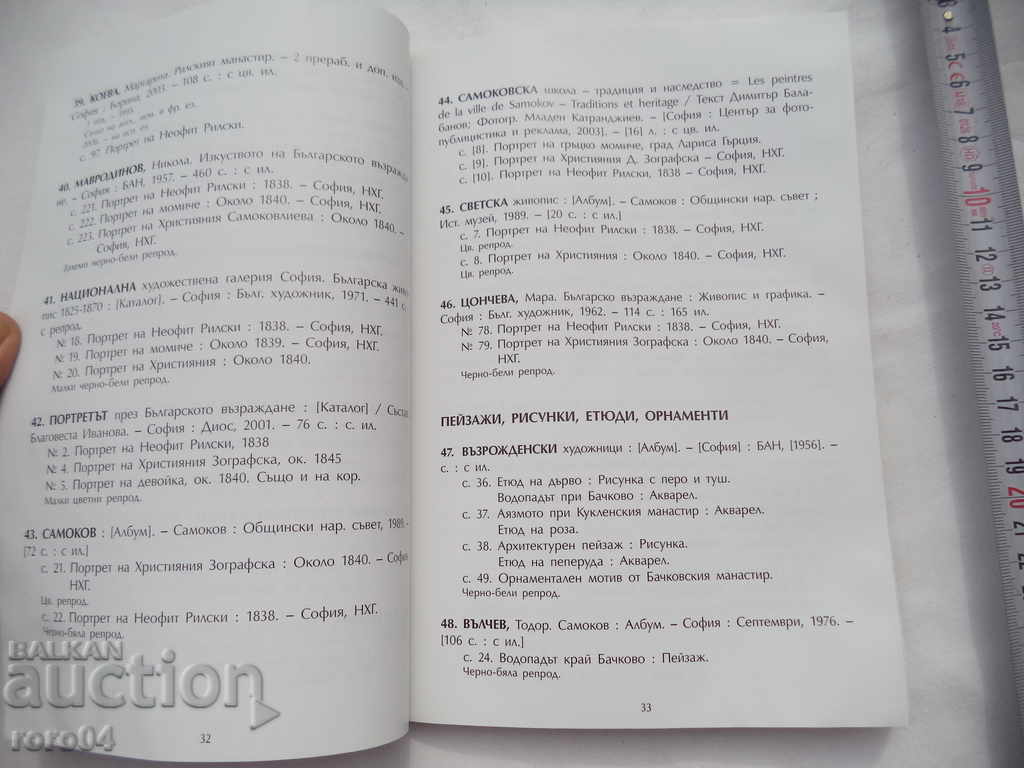 39. КОЕВА, Маргарита. Рилският манастир. – 2 прераб. и доп. изд. –
София : Борина, 2003. – 108 с. : с цв. ил.
с. 97. Портрет на Неофит Рилски.
40. МАВРОДИНОВ, Никола. Изкуството на Българското възражда
не. – София : БАН, 1957. – 460 с. : с ил.
с. 221. Портрет на Неофит Рилски : 1838. – София, НХГ.
с. 222. Портрет на момиче : Около 1840. – София, НХГ.
с. 223. Портрет на Християния Самоковлиева : Около 1840. –
София, НХГ.
Големи черно-бели репрод.
41. НАЦИОНАЛНА художествена галерия София. Българска живо
пис 1825-1870 : [Каталог]. – София : Бълг. художник, 1971. – 441 с.
с репрод.
№ 18. Портрет на Неофит Рилски : 1838. – София, НХГ.
№ 19. Портрет на момиче : Около 1839. – София, НХГ.
№ 20. Портрет на Християния : Около 1840.
Малки черно-бели репрод.
42. ПОРТРЕТЪТ през Българското възраждане : [Каталог] / Съста
Благовеста Иванова. – София : Диос, 2001. – 76 с. : с. ил.
№ 2. Портрет на Неофит Рилски, 1838
№ 4. Портрет на Християния Зографска, ок. 1845
№ 5. Портрет на девойка, ок. 1840. Също и на кор.
Малки цветни репрод.
43. САМОКОВ : [Албум]. – Самоков : Общински нар. съвет, 1989. –
[72 с. : с ил.]
с. 21. Портрет на Християния Зографска : Около 1840. – София
НХГ.
Цв. репрод.
с. 22. Портрет на Неофит Рилски : 1838. – София, НХГ.
Черно-бяла репрод.
32
44. САМОКОВСКА школа – традиция и наследство = Les peintres
de la ville de Samokov – Traditions et heritage / Текст Димитър Бала-
банов; Фотогр. Младен Катранджиев. – [София : Център за фото-
публицистика и реклама, 2003]. – [16] л. : с цв. ил.
с. [8]. Портрет на гръцко момиче, град Лариса Гърция.
с. [9]. Портрет на Християния Д. Зографска – София, НХГ.
с. [10]. Портрет на Неофит Рилски, 1838 – София, НХГ.
45. СВЕТСКА живопис : [Албум]. – Самоков : Общински нар. съвет ;
Ист. музей, 1989. – [20 с. : с ил.]
с. 7. Портрет на Неофит Рилски : 1838. – София, НХГ.
Цв. репрод.
с. 8. Портрет на Християния : Около 1840. – София, НХГ.
Цв. репрод.
46. ЦОНЧЕВА, Мара. Българско възраждане : Живопис и графика. –
София : Бълг. художник, 1962. – 114 с. : 165 ил.
№ 78. Портрет на Неофит Рилски : 1838. – София, НХГ.
№ 79. Портрет на Християния Зографска : Около 1840. – София,
НХГ.
Черно-бели репрод.
ПЕЙЗАЖИ, РИСУНКИ, ЕТЮДИ, ОРНАМЕНТИ
47. ВЪЗРОЖДЕНСКИ художници : [Албум]. – [София] : БАН, [1956]. –
с. : с ил.
с. 36. Етюд на дърво : Рисунка с перо и туш.
Водопадът при Бачково : Акварел.
с. 37. Аязмото при Кукленския манастир : Акварел.
Етюд на роза.
с. 38. Архитектурен пейзаж : Рисунка.
Етюд на пеперуда : Акварел.
с. 49. Орнаментален мотив от Бачковския манастир.
Черно-бели репрод.
48. ВЪЛЧЕВ, Тодор. Самоков : Албум. – София : Септември, 1976. –
[106 с. : с ил.]
с. 24. Водопадът край Бачково : Пейзаж.
Черно-бяла репрод.
33
4 5 6 7 8 9 10 11 12 13 14 15 16 17 18 19 20 21 22
BALKAN
auction
roro04